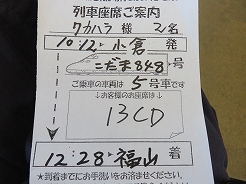 列車座席ご案内
ワカハラ 様 2名
10:12 小倉 発
こだま848号
ご乗車の車両は 5 号車です
↓お客様のお座席は↓
13CD
12:28 福山 着
★到着までにお手洗いをお済ませください。